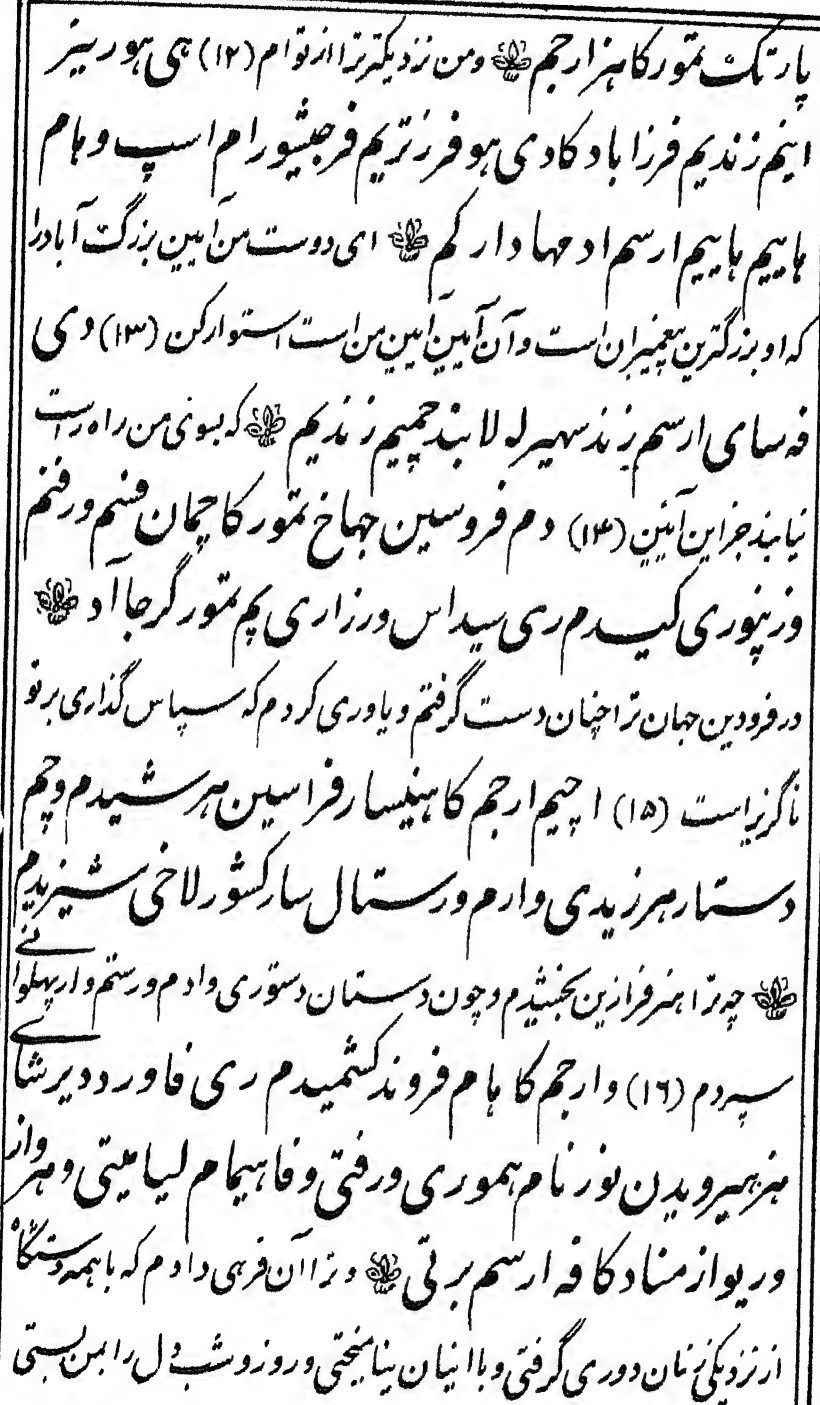 پارتک تمورکا هزارجم ۞ ومن نزدیکترترا از توام (۱۲) هی هورینر
اینم زندیم فرزاباد کادی هو فرزتریم فرجیشور ام اسپ و هام
هاییم هاییم ارسم اد مهادار کم ۞ ای دوست من آیین بزرگ آبادرا
که او بزرگترین پیغمبران است و آن آیین آیین من است استوار کن (۱۳) دی
فه سای ارسم زند سهیر له لابند چمیم زندیم ۞ که بسوئی من راه راست
نیابند جز این آئین (۱۴) دم فروسین جهاخ تمور کا چمان فسنم ورفتم
وزپنوری کیسدم ری سیداس ورزاری پم تمور گرجا آد ۞
در فرودین جهان ترا چنان دست گرفتم ویاوری کردم که سپاس گذاری بر تو
ناگزیر است (۱۵) اچیم ارجم کا هنیسار فراسین هرشیدم وچم
دستار هرزیدی وارم ورستال سار کشور لاخی شیزیدم
۞ چه ترا هنر فرازین بخشیدم و چون دستان دستوری دادم و رستم وار پهلوانے
سپردم (۱۶) وارجم کا هام فروند کشمیدم ری فاورد دیرشاے
هنر همیرویدن نورنام هموری ورفتی وفاهیمام لیامیتی و هرواز
وریواز مناد کا فه ارسم برتی ۞ و ترا آن فرهی دادم که باهمه دستگاه
از نزدیکی زنان دوری گرفتی و با انیان نیامیختی و روز و شب دل را بمن بستی